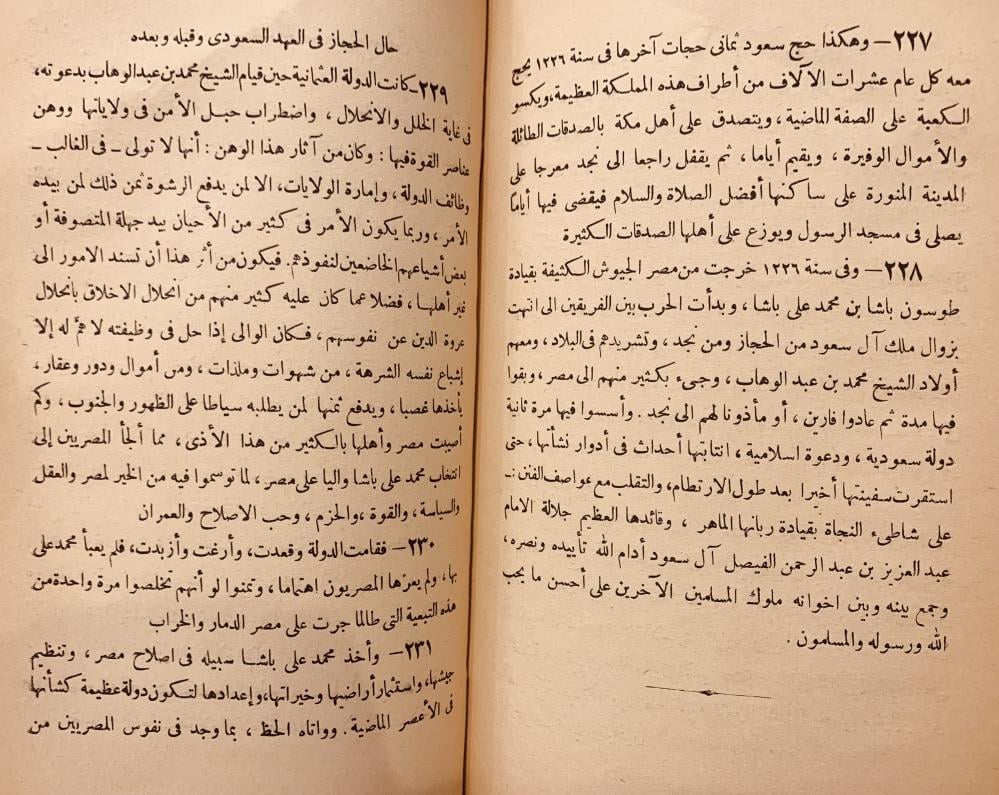 ٢٢٧ـ وهكذا حج سعود ثمانى حجات آخرها فى سنة ١٢٢٦ يحج
معه كل عام عشرات الآلاف من أطراف هذه المملكة العظيمة، ويكسو
الكعبة على الصفة الماضية، ويتصدق على أهل مكة بالصدقات الطائلة
والأموال الوفيرة، ويقيم أياما، ثم يقفل راجعا الى نجد معرجا على
المدينة المنورة على ساكنها أفضل الصلاة والسلام فيقضى فيها أياما
يصلى فى مسجد الرسول ويوزع على أهلها الصدقات الكثيرة
٢٢٨ـ وفى سنة ١٢٢٦ خرجت من مصر الجيوش الكثيفة بقيادة
طوسون باشا بن محمد على باشا، وبدأت الحرب بين الفريقين الى انتهت
بزوال ملك آل سعود من الحجاز ومن نجد، وتشريدهم فى البلاد، ومعهم
أولاد الشيخ محمد بن عبد الوهاب، وجىء بكثير منهم الى مصر، وبقوا
فيها مدة ثم عادوا فارين، أو مأذونا لهم الى نجد. وأسسوا فيها مرة ثانية
دولة سعودية، ودعوة اسلامية، انتابتها أحداث فى أدوار نشأتها، حتى
استقرت سفينتها أخيرا بعد طول الارتطام، والتقلب مع عواصف الفتن:ـ
على شاطىء النجاة بقيادة ربانها الماهر، وقائدها العظيم جلالة الامام
عبد العزيز بن عبد الرحمن الفيصل آل سعود أدام الله تأييده ونصره،
وجمع بينه وبين اخوانه ملوك المسلمين الآخرين على أحسن ما يحب
الله ورسوله والمسلمون.
حال الحجاز فى العهد السعودى وقبله وبعده
٢٢٩ـ كانت الدولة العثمانية حين قيام الشيخ محمد بن عبد الوهاب بدعوته،
فى غاية الخلل والانحلال، واضطراب حبل الأمن فى ولاياتها ووهن
عناصر القوة فيها: وكان من آثار هذا الوهن: أنها لا تولى ـ فى الغالب ـ
وظائف الدولة، وإمارة الولايات، الا لمن يدفع الرشوة ثمن ذلك لمن بيده
الأمر، وربما يكون الأمر فى كثير من الأحيان بيد جهلة المتصوفة أو
بعض أشياعهم الخاضعين لنفوذهم. فيكون من أثر هذا أن تسند الامور الى
غير أهلها، فضلا عما كان عليه كثير منهم من انحلال الاخلاق بانحلال
عروة الدين عن نفوسهم، فكان الوالى إذا حل فى وظيفته لا همَّ له إلا
إشباع نفسه الشرهة، من شهوات وملذات، ومن أموال ودور وعقار،
يأخذها غصبا، ويدفع ثمنها لمن يطلبه سياطا على الظهور والجنوب، وكم
أصيبت مصر وأهلها بالكثير من هذا الأذى، مما ألجأ المصريين إلى
انتخاب محمد على باشا واليا على مصر، لما توسموا فيه من الخير لمصر والعقل
والسياسة، والقوة، والحزم، وحب الاصلاح والعمران
٢٣٠ـ فقامت الدولة وقعدت، وأرغت وأزبدت، فلم يعبأ محمد على
بها، ولم يعرها المصريون اهتماما، وتمنوا لو أنهم تخلصوا مرة واحدة من
هذه التبعية التى طالما جرت على مصر الدمار والخراب
٢٣١ـ وأخذ محمد على باشا سبيله فى اصلاح مصر، وتنظيم
جيشها، واستثمار أراضيها وخيراتها، وإعدادها لتكون دولة عظيمة كشأنها
فى الأعصر الماضية. وواتاه الحظ، بما وجد فى نفوس المصريين من